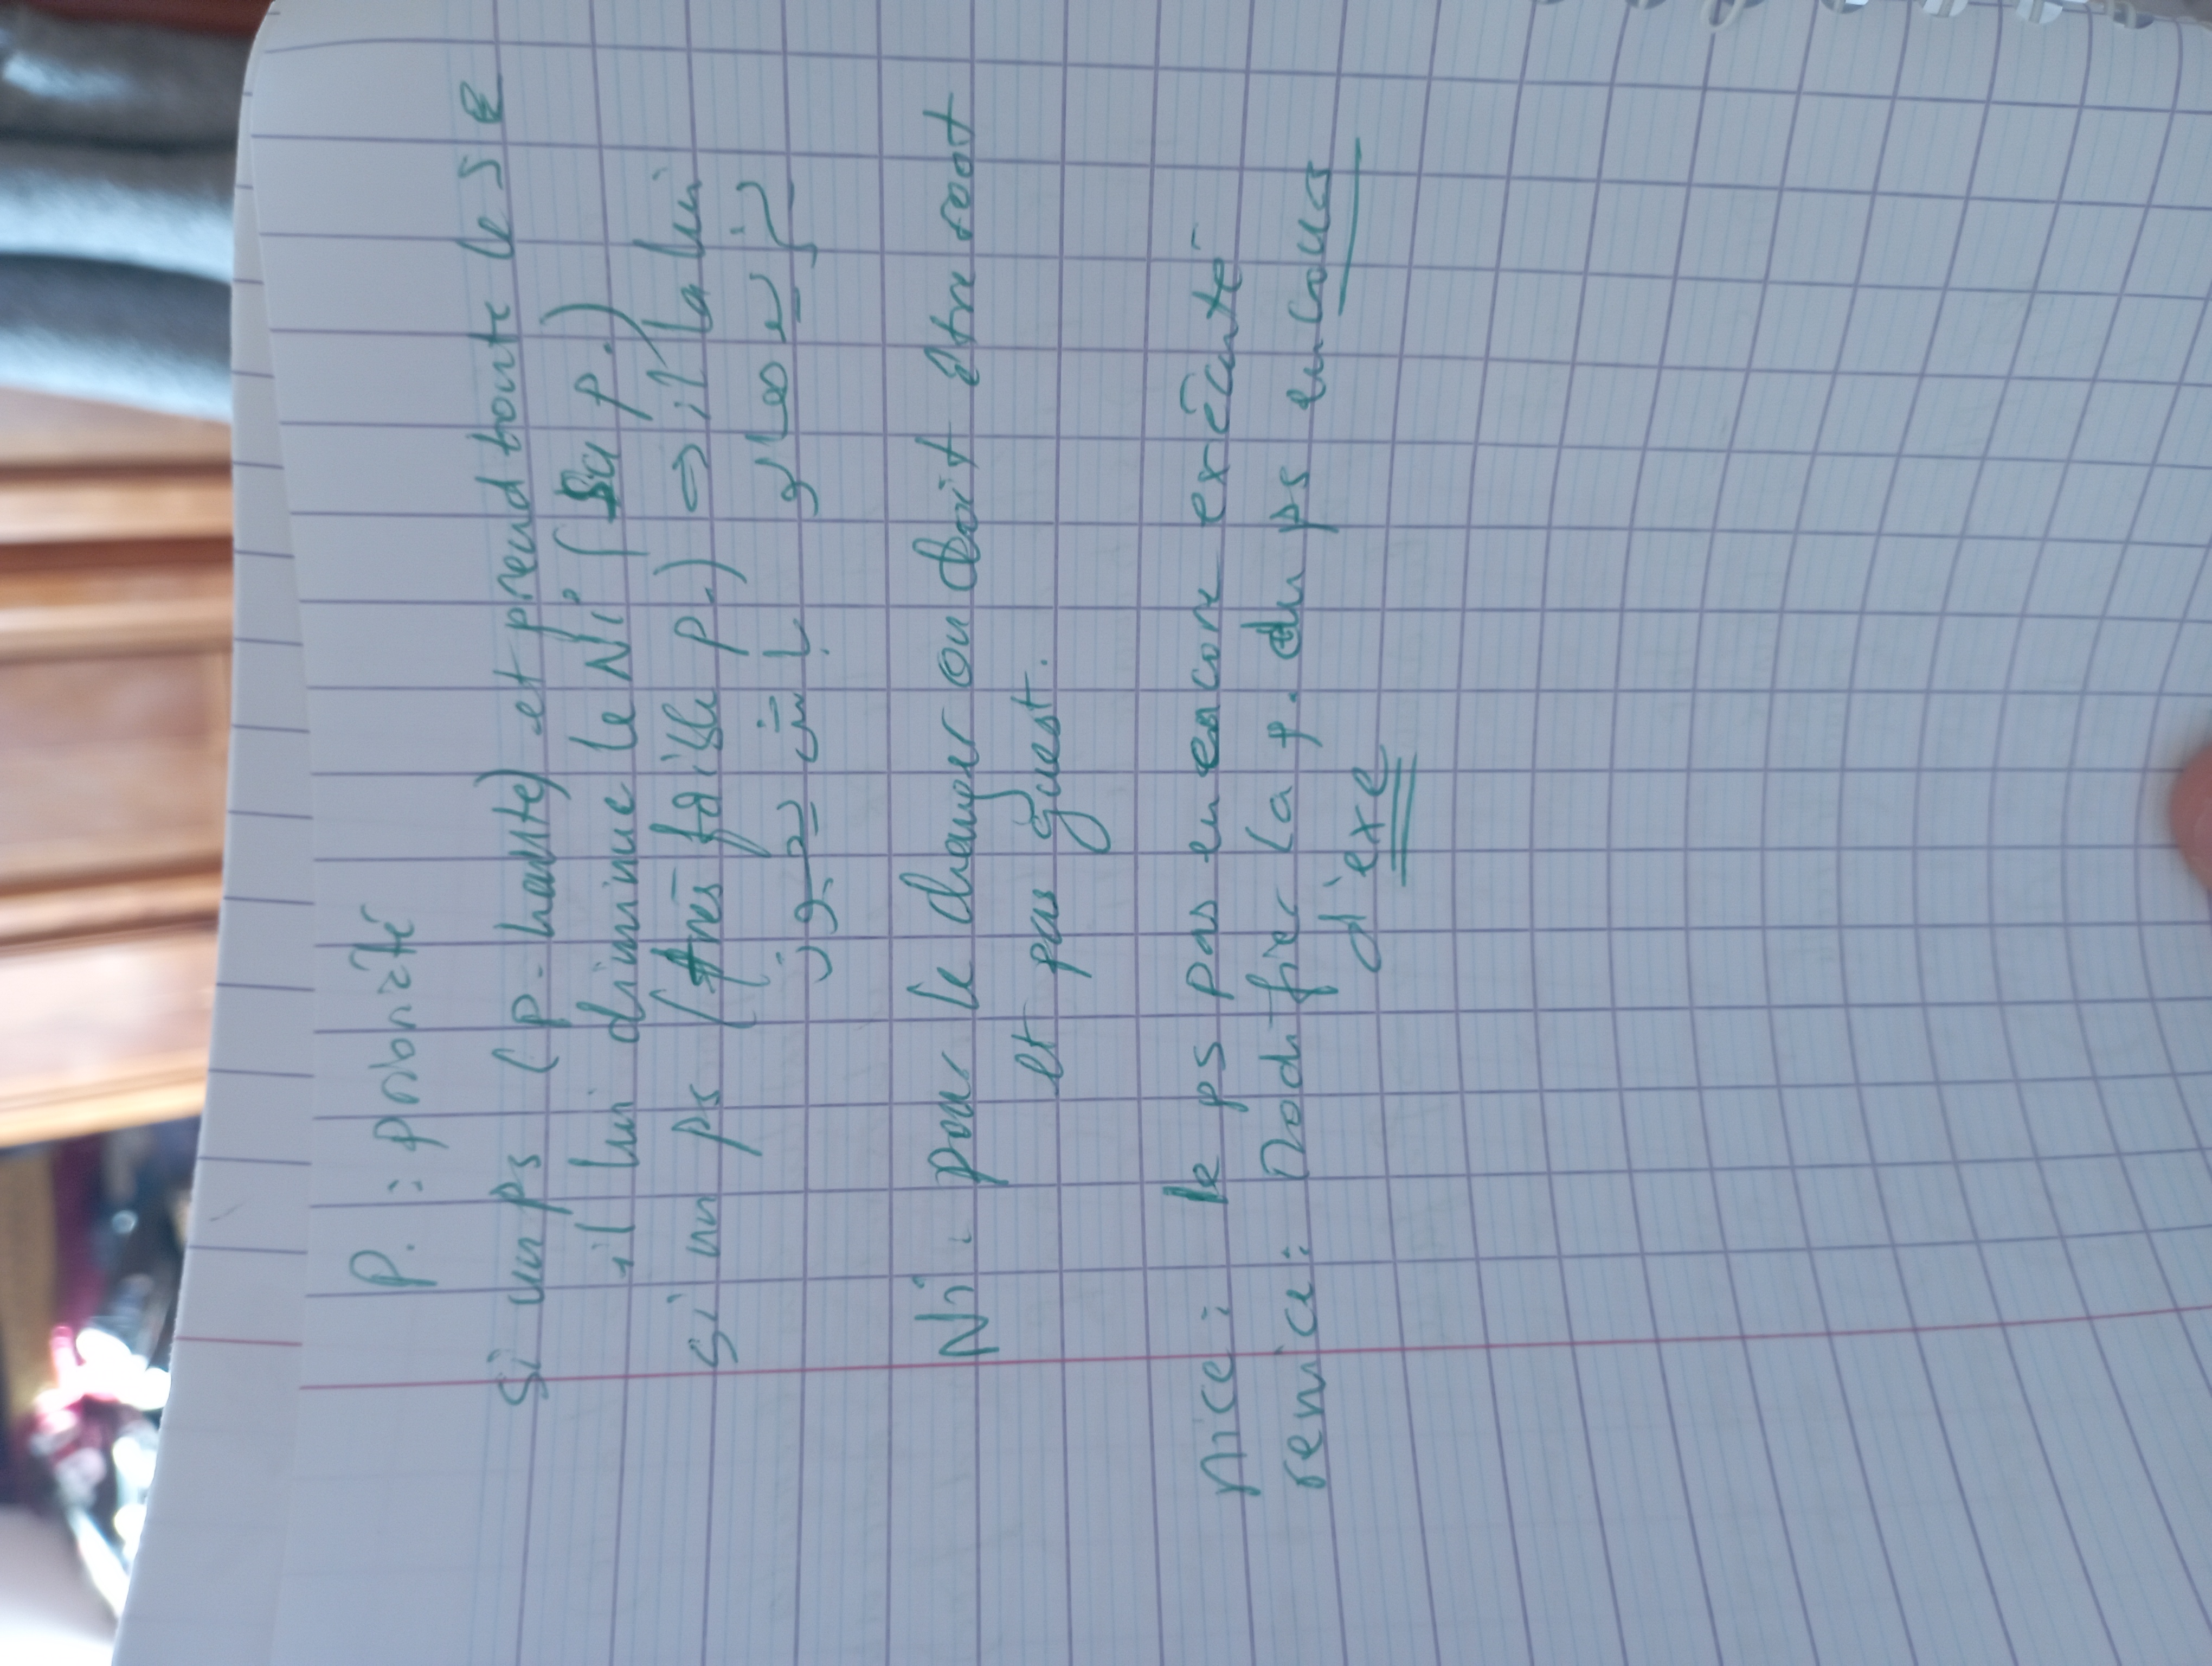 P. : priorité
Si un ps (p. haute) et prend toute le SE
il lui diminue le Ni (Sa p.)
si un ps (très faible p.) => il la lui
يزيدهالو باش يجوز
Ni : pour le changer on doit être root
et pas guest.
nice : le ps pas en encore exécuté
renice : Modifier la p. du ps en cours
d'exe